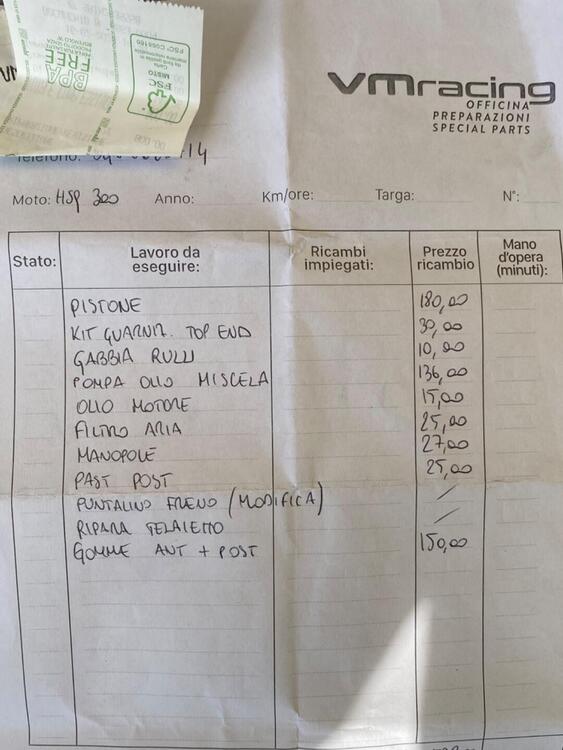 BPA
FREE
FSC
MISTO
Carta
FSC® C068166
vmracing
OFFICINA
PREPARAZIONI
SPECIAL PARTS
Telefono: 14
Moto: HSQ 300 Anno: Km/ore: Targa: N°:
Stato: Lavoro da eseguire: Ricambi impiegati: Prezzo ricambio Mano d'opera (minuti):
PISTONE 180,00
KIT GUARNIZ. TOP END 30,00
GABBIA RULLI 10,00
POMPA OLIO MISCELA 136,00
OLIO MOTORE 15,00
FILTRO ARIA 25,00
MANOPOLE 27,00
PAST POST 25,00
PUNTALINO FRENO (MODIFICA) /
RIPARA TELAIETTO /
GOMME ANT + POST 150,00